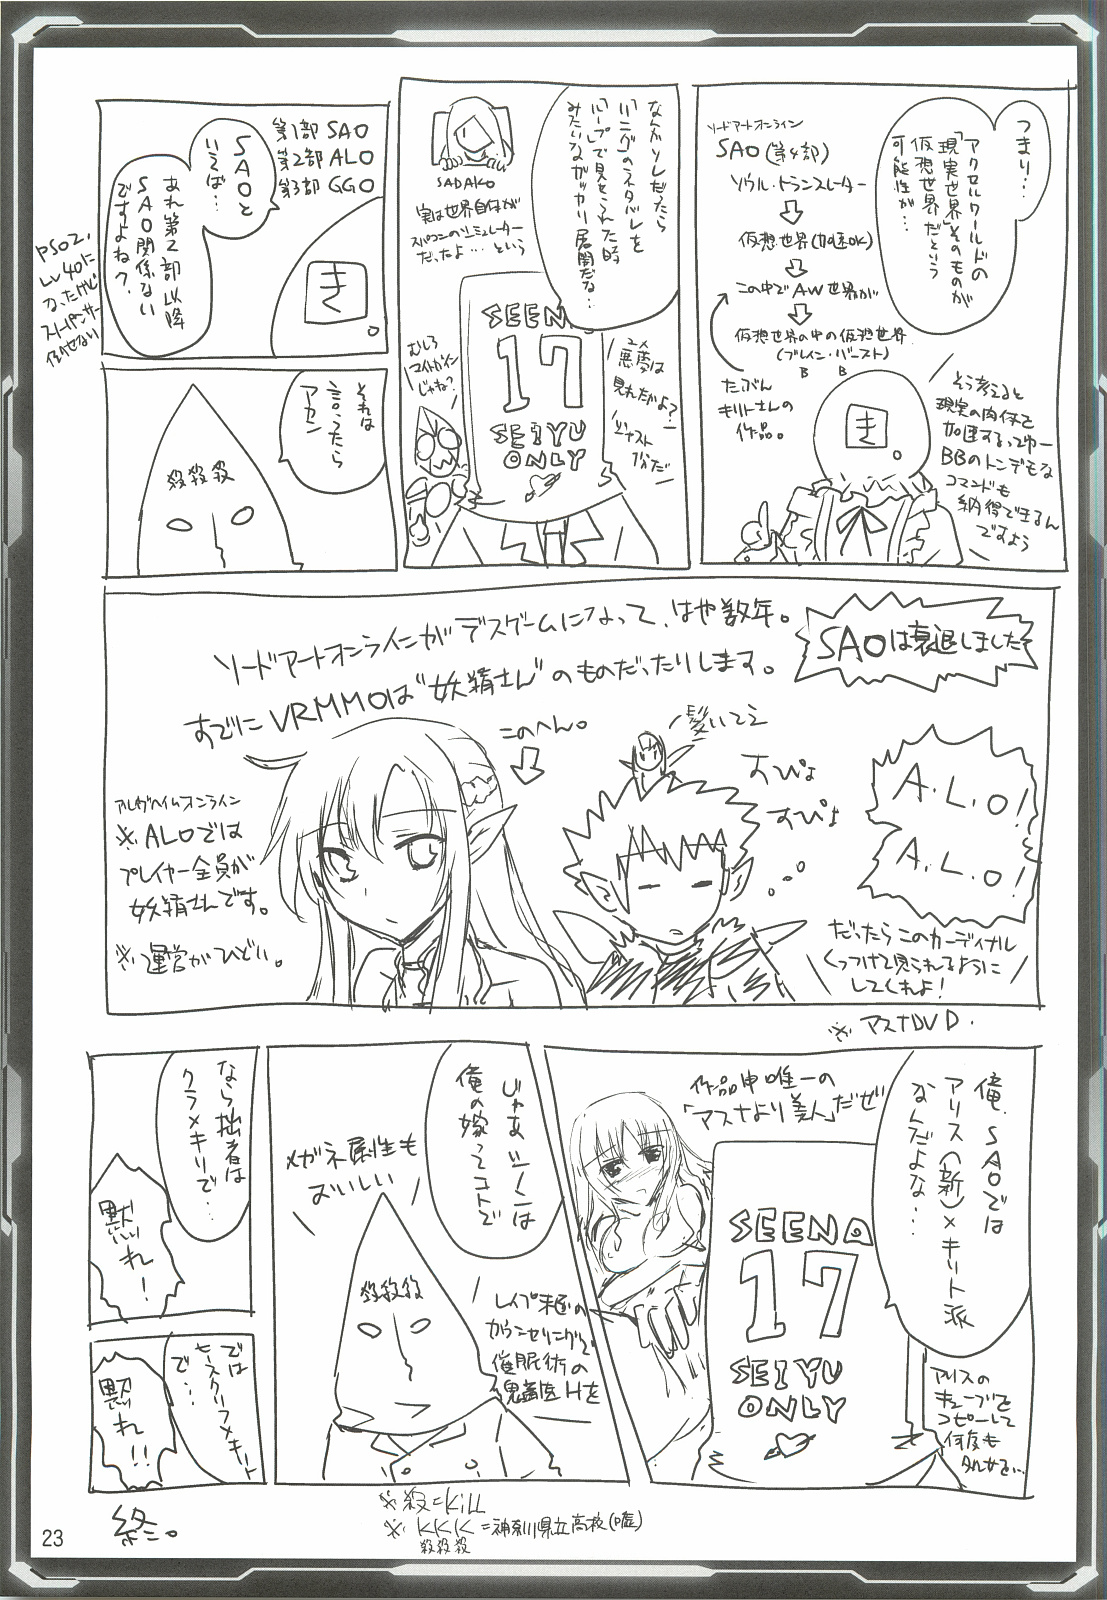 つまり…
アクセルワールドの
「現実世界」そのものが
仮想世界だという
可能性が…
ソードアートオンライン
SAO(第4部)
ソウル・トランスレーター
仮想世界(加速OK)
この中でAW世界が
仮想世界の中の仮想世界
(ブレイン・バースト)
B B
たぶん
キリトさんの
作品。
き。
そう考えると
現実の肉体を
加速するってゆー
BBのトンデモな
コマンドも
納得できるん
ですよう
なんかソレだったら
「リング」のネタバレを
「ループ」で見せられた時
みたいなガッカリ展開だな…
SADAKO
実は世界自体が
スパコンのシミュレーター
だったよ…という
SEENA
17
SEIYU
ONLY
むしろ
マイトガイン
じゃね?
悪夢は
見れたかよ?
第1部 SAO
第2部 ALO
第3部 GGO
SAOと
いえば…
あれ第2部以降
SAO関係ない
ですよね?
き。
PSO2、
Lv40に
なったけど
倒せない
それは
言ったら
アカン
殺殺殺
ソードアートオンラインがデスゲームになって、はや数年。
すでにVRMMOは"妖精さん"のものだったりします。
SAOは衰退しました
このへん。
アルヴヘイムオンライン
※ALOでは
プレイヤー全員が
妖精さんです。
※運営がひどい。
髪いてえ
すぴょ
すぴょ
A.L.O!
A.L.O!
だったらこのカーディナル
くっつけて見られるように
してくれよ!
※アスナDVD.
俺、SAOでは
アリス(新)×キリト派
なんだよな…
作品中唯一の
「アスナより美人」だぜ
SEENA
17
SEIYU
ONLY
じゃあシノンは
俺の嫁ってコトで
メガネ属性も
おいしい
殺殺殺
なら拙者は
クラ×キリで…
黙れ!
では
ヒースクリフ×キリト
で…
黙れ!!
=神奈川県立高校(嘘)
殺殺殺
終。
23